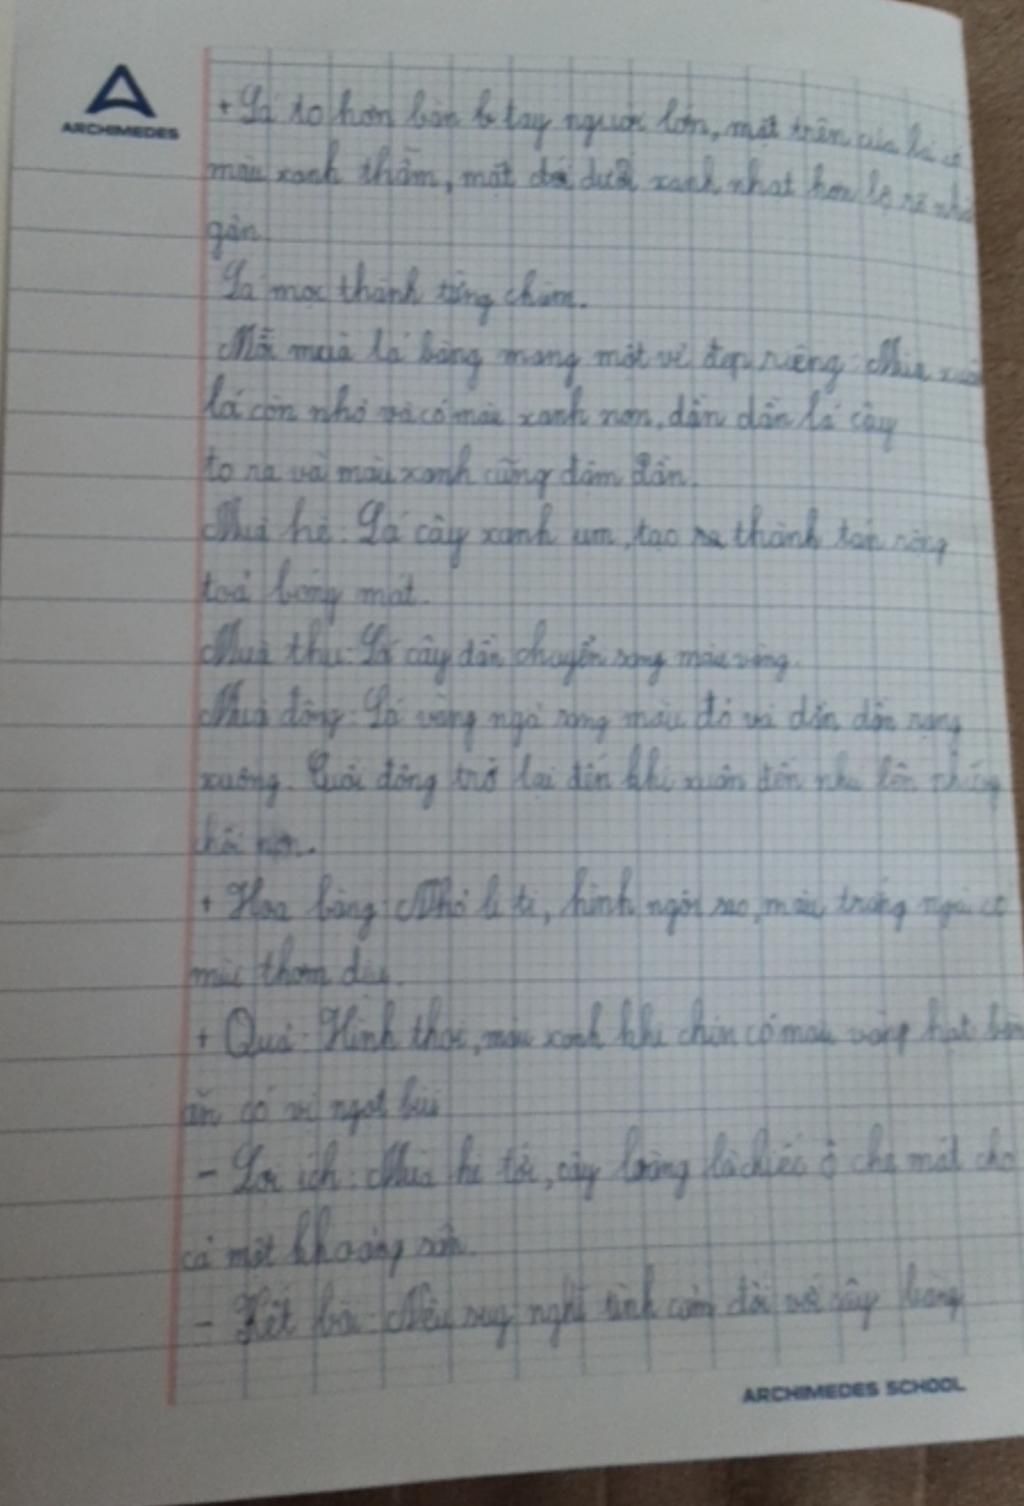 ARCHIMEDES
+ Lá to hơn bàn tay người lớn, mặt trên của lá có
màu xanh thẫm, mặt dưới xanh nhạt hơn lộ rõ
gân
Lá mọc thành từng chùm.
Mỗi mùa lá bàng mang một vẻ đẹp riêng: Mùa xuân
lá còn nhỏ và có màu xanh non, dần dần lá cây
to ra và màu xanh cũng đậm dần.
Mùa hè: Lá cây xanh um, tạo ra thành tán rộng
toả bóng mát.
Mùa thu: Lá cây dần chuyển sang màu vàng.
Mùa đông: Lá vàng ngả sang màu đỏ và dần dần rụng
xuống. Cuối đông trở lại đến khi xuân đến nhú lên những
chồi non.
+ Hoa bàng: Nhỏ li ti, hình ngôi sao, màu trắng ngà có
mùi thơm dịu.
+ Quả: Hình thoi, màu xanh khi chín có màu vàng hạt bàn
ăn có vị ngọt bùi
- Lợi ích: Mùa hè tới, cây bàng là chiếc ô che mát cho
cả một khoảng sân.
- Kết bài: Nêu suy nghĩ tình cảm đối với cây bàng
ARCHIMEDES SCHOOL